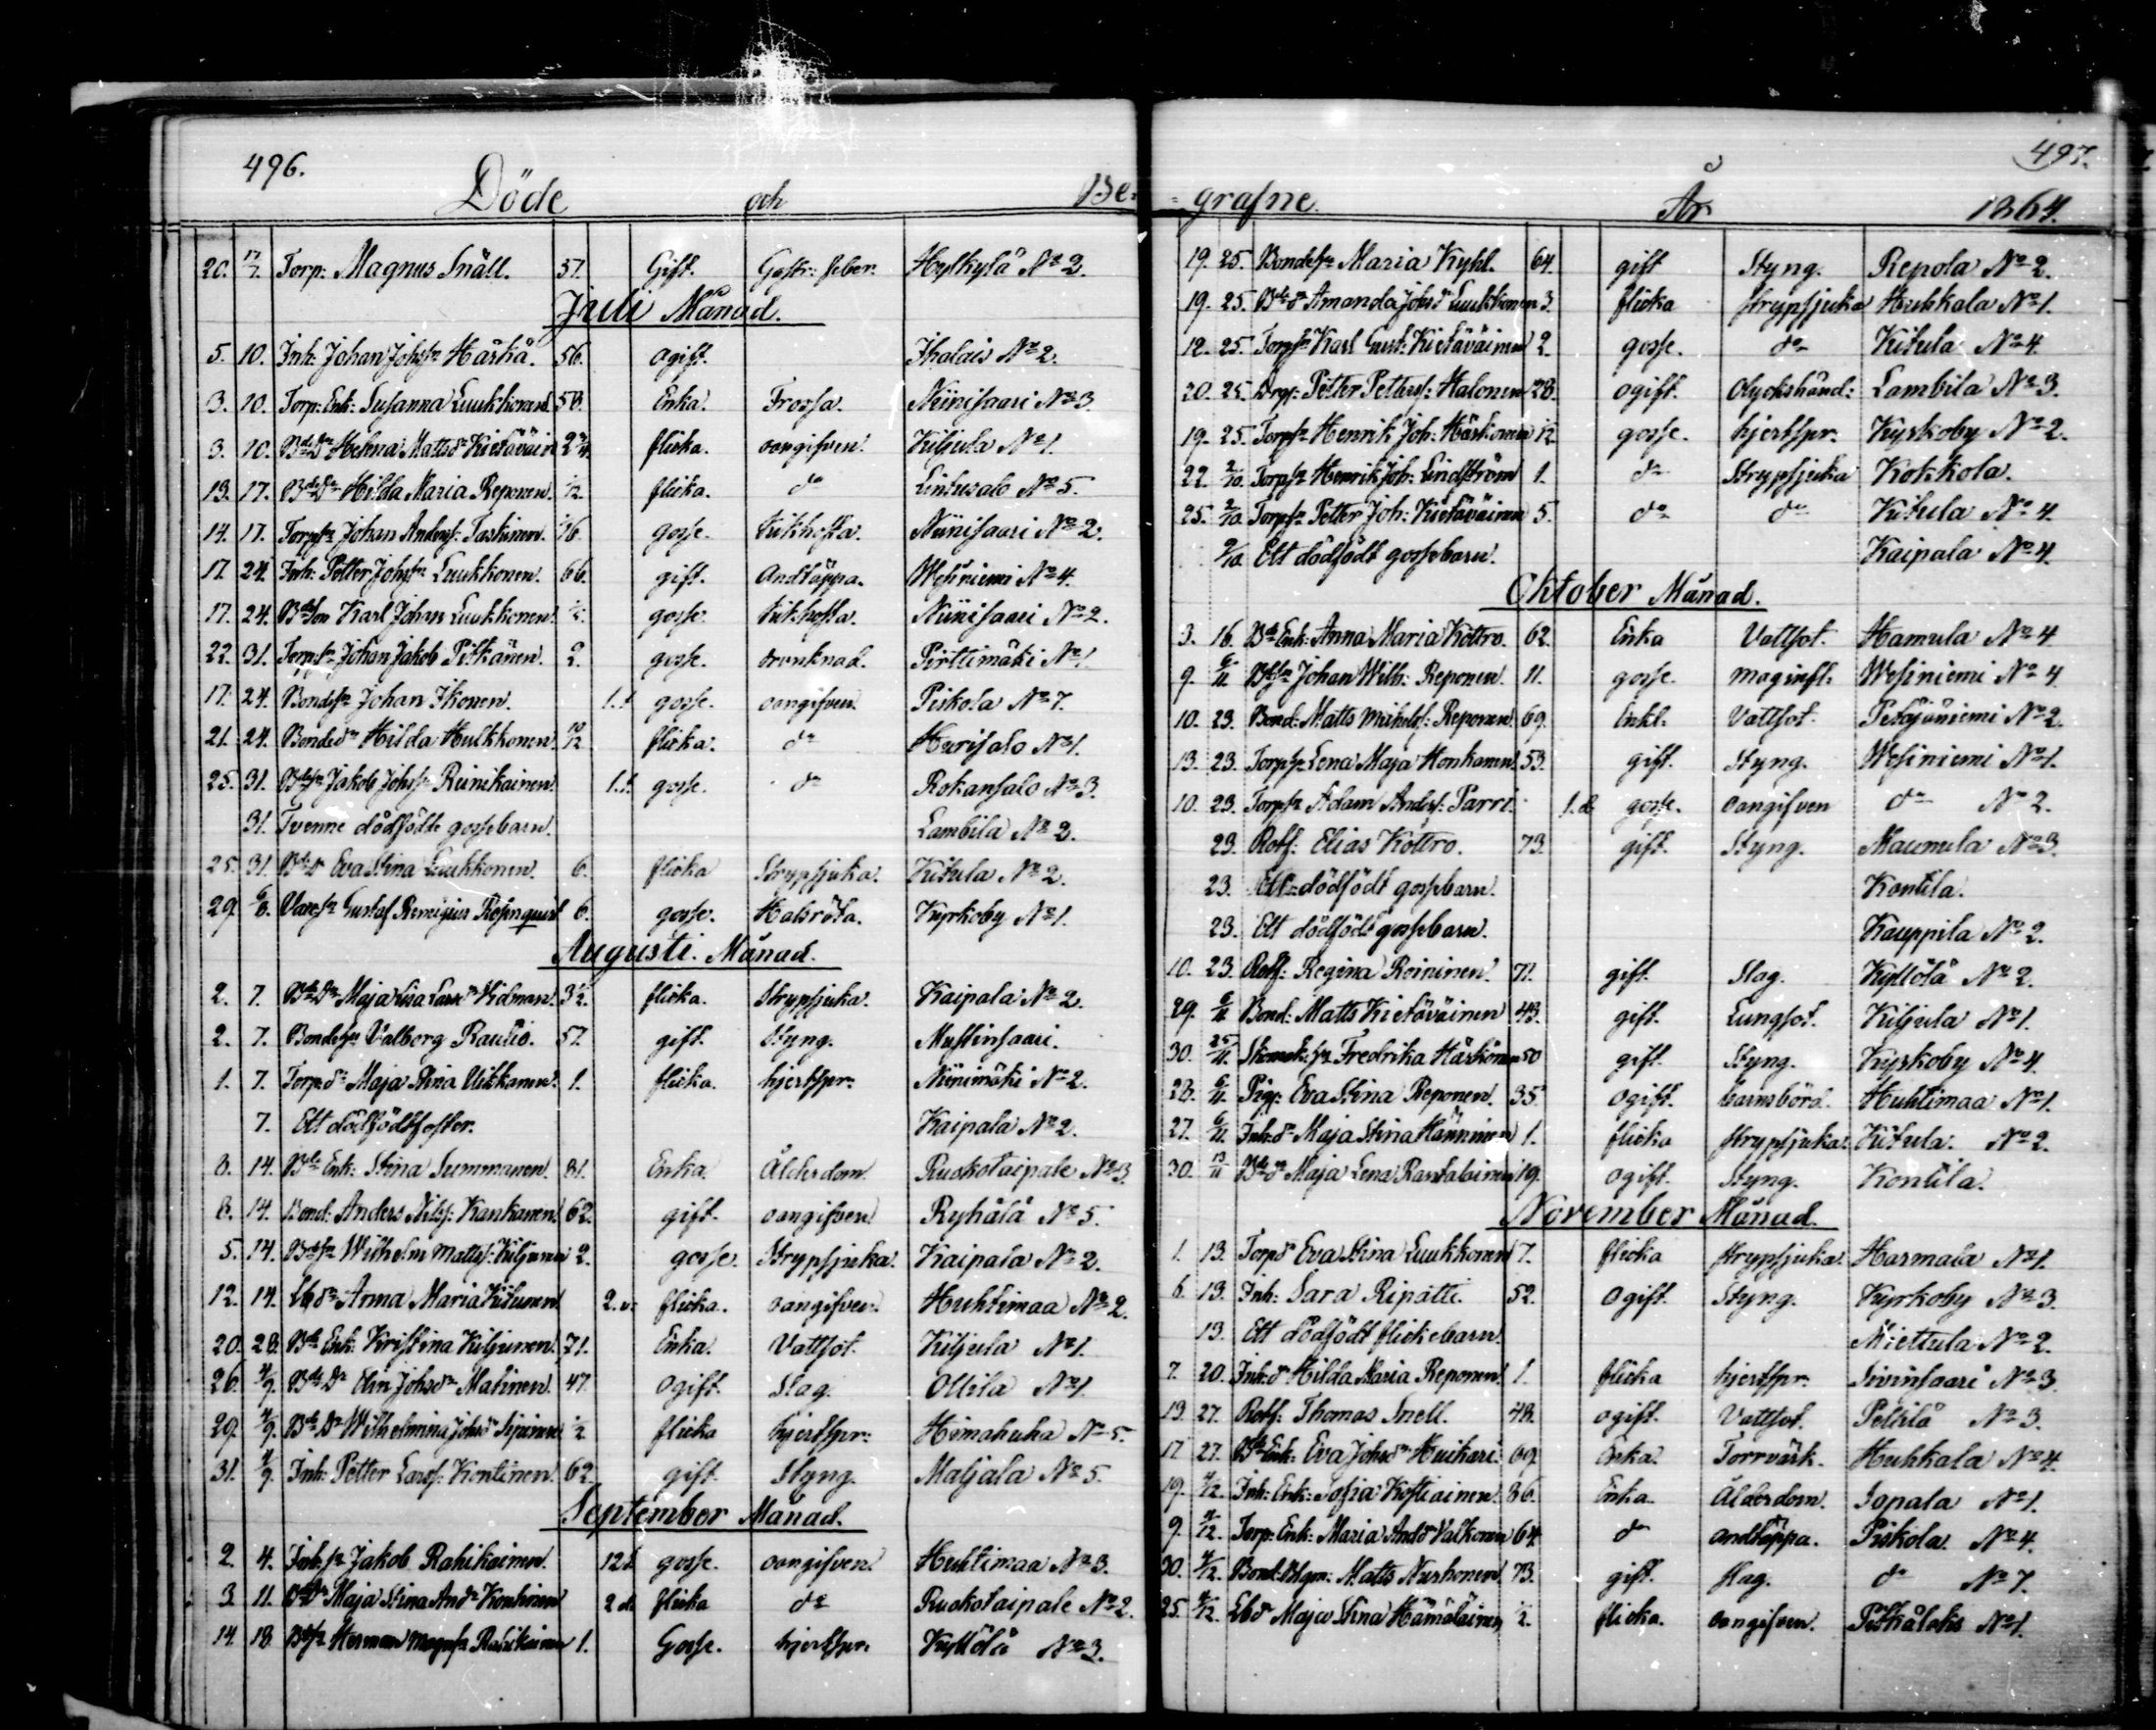 496.
Döde och Be-
20. 17/7. Torp: Magnus Snäll. 57. Gift. Gastr: feber. Hylkylä No 2.
Juli Månad.
5. 10. Inh: Johan Johsn Härkä. 56. ogift. Ihalais No 2.
3. 10. Torp: Enk: Susanna Luukkonen. 58. Enka. Frossa. Niinisaari No 3.
3. 10. Bde Dr Helena Mattsdr Kietäväin 2 3/4. flicka. oangifven. Kiljula No 1.
13. 17. Bde Dr Hilda Maria Reponen. 1/2. flicka. do Lintusalo No 5.
14. 17. Torpsn Johan Andersn Taskinen. gosse. kikhosta. Niinisaari No 2.
17. 24. Inh: Petter Johssn Luukkonen. 66. gift. Andtäppa. Wesiniemi No 4.
17. 24. Bde Son Karl Johan Luukkonen. gosse. kikhosta. Niinisaari No 2.
22. 31. Torpsn Johan Jakob Pitkänen. 2. gosse. drunknad. Pirttimäki No 1.
17. 24. Bondesn Johan Ikonen. 1.t gosse. oangifven. Piskola No 7.
21. 24. Bondedr Hilda Hulkkonen. 10/12 flicka. do Hurisalo No 1.
25. 31. Bdesn Jakob Johssn Reinikainen. 1.t. gosse. do Rokansalo No 3.
31. Tvenne dödfödde gossebarn. Lambila No 2.
25. 31. Bdedr Eva Stina Luukkonen. 6. flicka Strypsjuka. Kitula No 2.
29. 6/8. Gustaf Remigius Rosenqvist 6. gosse. Halsröta. Kyrkoby No 1.
Augusti. Månad.
2. 7. Bde Dr Maja Lisa Larsdr Kidman. 3 1/2. flicka. Strypsjuka. Kaipala No 2.
2. 7. Bondehu Valborg Rautio. 57. gift. Styng. Mustinsaari.
1. 7. Torp. dr Maja Stina Ukkanen. 1. flicka. hjertspr: Niinimäki No 2.
7. Ett dödfödt foster. Kaipala No 2.
8. 14. Bde Enk: Stina Summanen. 81. Enka. Ålderdom. Ruokotaipale No 3.
8. 14. Bond: Anders Nilss: Kankanen. 62. gift. oangifven. Ryhälä No 5.
5. 14. Bdesn Wilhelm Mattss: Kiljunen 2. gosse. Strypsjuka. Kaipala No 2.
12. 14. Lbdr Anna Maria Kitunen. 2.v. flicka. oangifven. Huhtimaa No 2.
20. 28. Bde Enk. Kristina Kiljunen. 71. Enka. Vattsot. Kiljula No 1.
26. 4/9. Bde Dr Elin Johsdr Matinen. 47. Ogift. Slag. Ollila No 1.
29. 4/9. Bde Dr Wilhelmina Johsdr 1/2 flicka hjertspr: Himahuha No 5.
31. 4/9. Inh: Petter Larss: Kontinen. 62. gift. Styng. Maljala No 5.
September Månad.
2. 4. Inh. sn Jakob Rahikainen. 12 t. gosse. oangifven. Huhtimaa No 3.
3. 11. Bde Dr Maja Stina Andr Kontinen 2 d. flicka do Ruokotaipale No 2.
14. 18. Bdesn Herman Magnssn Rahikainen 1. Gosse. hjertspr. Kyllölä No 3.
497.
grafne. År 1864.
19. 25. Bondehu Maria Kyhl. 64. gift Styng. Repola No 2.
19. 25. Bdedr Amanda Johsdr Luukkonen 3. flicka strypsjuka Huhkala No 1.
12. 25. Torpsn Karl Gust: Kietäväinen 2. gosse. do Kitula No 4.
20. 25. Drg: Petter Petterss: Halonen 28. ogift. Olyckshänd: Lambila No 3.
19. 25. Torpsn Henrik Joh: Härkönen 1/2 gosse. hjertspr. Kyrkoby No 2.
22. 2/10. Torpsn Henrik Joh: Lindström 1. do Strypsjuka Kokkola.
25. 2/10. Torpsn Petter Joh: Kietäväinen 5. do do Kitula No 4.
9/10. Ett dödfödt gossebarn. Kaipala No 4.
Oktober Månad.
3. 16. Bde Enk: Anna Maria Kottro. 62. Enka Vattsot. Hamula No 4.
9. 6/11. Bdesn Johan Wilh: Reponen. 11. gosse. maginfl. Wesiniemi No 4.
10. 23. Bond: Matts Mickelss: Reponen. 69. Enkl. Vattsot. Petäjäniemi No 2.
13. 23. Torphu Lena Maja Honkanen. 53. gift. Styng. Wesiniemi No 1.
10. 23. Torpsn Adam Andrss: Parri. 1. d. gosse. oangifven do No 2.
23. Roth: Elias Kottro. 73. gift. Styng. Maunula No 3.
23. Ett dödfödt gossebarn. Kontila.
23. Ett dödfödt gossebarn. Kauppila No 2.
10. 23. Roth: Regina Roininen. 71. gift. Slag. Kyllölä No 2.
29. 6/11. Bond: Matts Kietäväinen 48. gift. Lungsot. Kiljula No 1.
30. 25/11. Fredrika Härkönen 50 gift. Styng. Kyrkoby No 4.
28. 6/11. Pig: Eva Stina Reponen. 35. ogift. barnsbörd. Huhtimaa No 1.
27. 6/11. Inh.dr Maja Stina Hänninen 1. flicka strypsjuka. Kitula. No 2.
30. 13/11 Bdedr Maja Lena Rantalainen 19. ogift. Styng. Kontila.
November Månad.
1. 13. Torpdr Eva Stina Luukkonen 7. flicka strypsjuka. Harmala No 1.
6. 13. Inh: Sara Ripatti. 52. Ogift. Styng. Kyrkoby No 3.
13. Ett dödfödt flickebarn. Miettula No 2.
7. 20. Inh.dr Hilda Maria Reponen. 1. flicka hjertspr. Sivinsaari No 3.
13. 27. Roth: Thomas Snell. 48. ogift. Vattsot. Pellilä No 3.
17. 27. Bde Enk: Eva Johsdr Huikari. 69. Enka. Torrvärk. Huhkala No 4.
19. 4/12. Inh: Enk: Sofia Kostiainen. 86. Enka. Ålderdom. Sopala No 1.
9. 4/12. Torp: Enk: Maria Andr Valkonen 64. do andtäppa. Piskola No 4.
30. 4/12. Bond: Matts Nurhonen. 73. gift. slag. do No 7.
25. 4/12. Lbdr Maja Stina Hämäläinen 1/2. flicka. oangifven. Pitkälaks No 1.